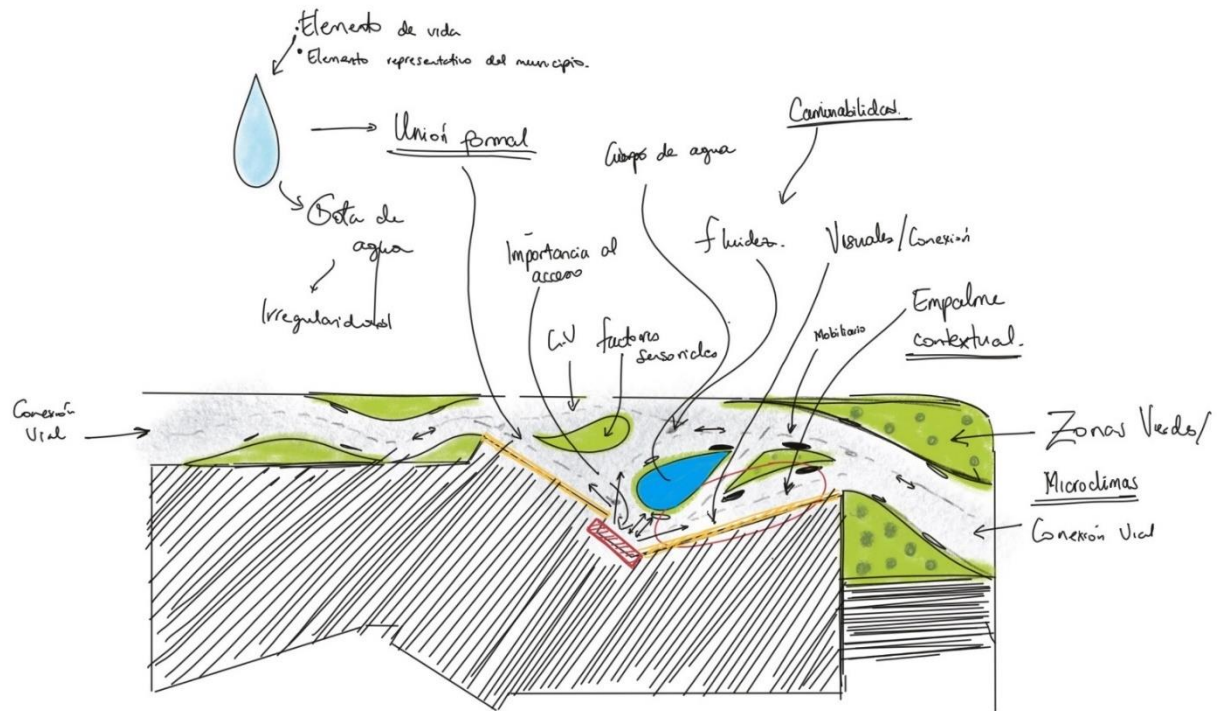 Elemento de vida
Elemento representativo del municipio.
Unión formal
Gota de
agua
Irregularidad
Caminabilidad.
Cuerpo de agua
fluidez.
Visuales/Conexión
Importancia al
acceso
Empalme
contextual.
Mobiliario
factores
sensoriales
Conexión
Vial
Zonas Verdes/
Microclimas
Conexión Vial